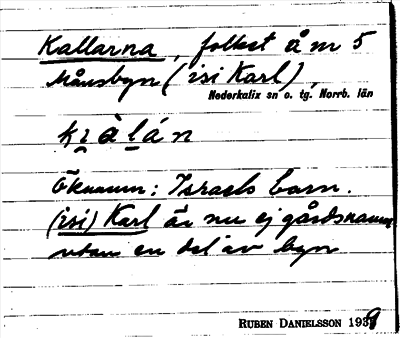 Kallarna, folket å nr 5
Månsbyn (isi Karl),
Nederkalix sn o. tg. Norrb. län
kràlán
Öknamn: Israels barn.
(isi) Karl är nu ej gårdsnamn
utan en del av byn
RUBEN DANIELSSON 1939